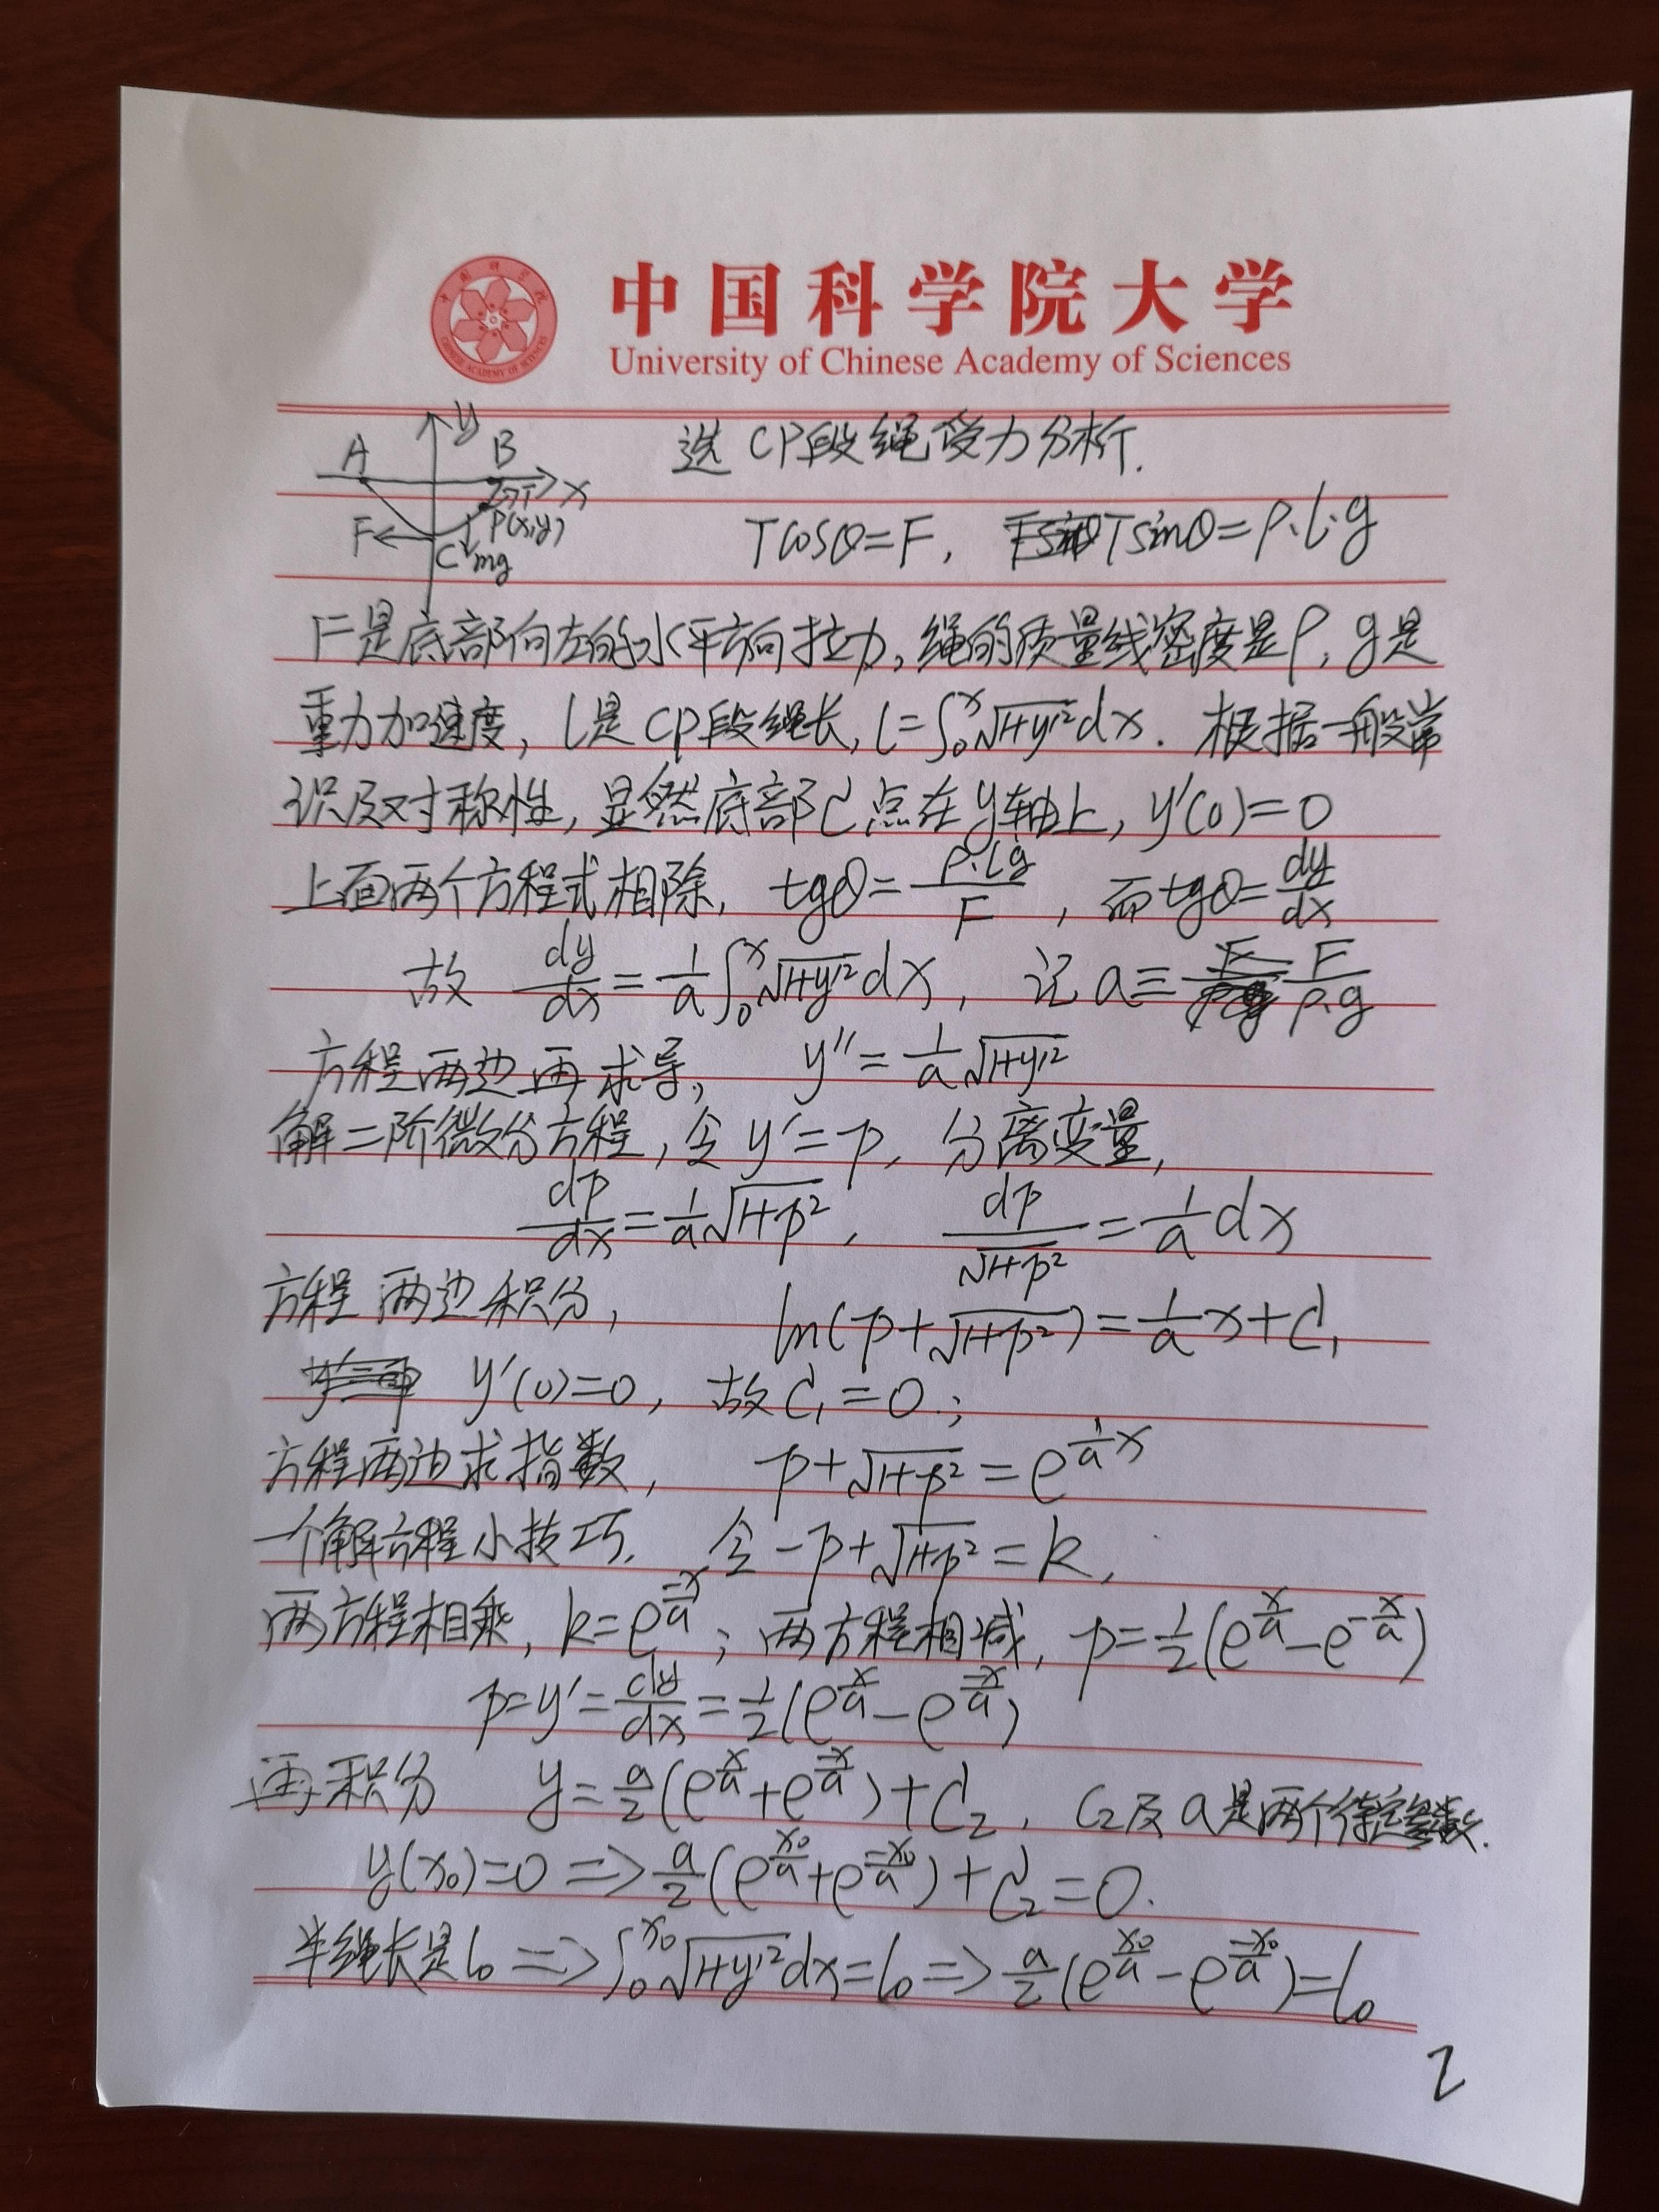 中国科学院大学
University of Chinese Academy of Sciences
y A B x T P(x,y) F C mg
选CP段绳受力分析.
Tcosθ=F, Tsinθ=ρ·l·g
F是底部向左的水平方向拉力,绳的质量线密度是ρ,g是
重力加速度,l是CP段绳长,l=∫₀ˣ√(1+y'²)dx. 根据一般常
识及对称性,显然底部C点在y轴上,y'(0)=0
上面两个方程式相除, tgθ=ρ·lg/F, 而tgθ=dy/dx
故 dy/dx=1/a∫₀ˣ√(1+y'²)dx, 记a≡F/ρ·g
方程两边再求导, y''=1/a√(1+y'²)
解二阶微分方程,令y'=p, 分离变量,
dp/dx=1/a√(1+p²), dp/√(1+p²)=1/a dx
方程两边积分, ln(p+√(1+p²))=1/a x+C₁
y'(0)=0, 故C₁=0.;
方程两边求指数, p+√(1+p²)=e^(1/a x)
一个解方程小技巧. 令-p+√(1+p²)=k,
两方程相乘, k=e^(-x/a); 两方程相减, p=1/2(e^(x/a)-e^(-x/a))
p=y'=dy/dx=1/2(e^(x/a)-e^(-x/a))
再积分 y=a/2(e^(x/a)+e^(-x/a))+C₂, C₂及a是两个待定参数.
y(x₀)=0 => a/2(e^(x₀/a)+e^(-x₀/a))+C₂=0.
半绳长是l₀ => ∫₀^(x₀)√(1+y'²)dx=l₀ => a/2(e^(x₀/a)-e^(-x₀/a))=l₀
2